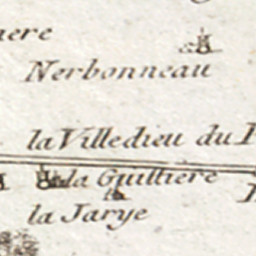 Nerbonneau
la Villedieu du
la Guiltiere
la Jarye